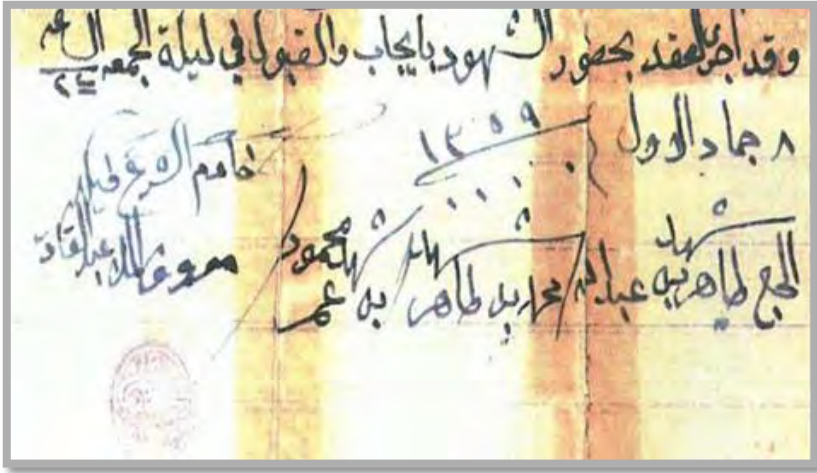 وقد أجرى العقد بحضور الشهود بايجاب والقبول في ليلة الجمعه الساعه
٨ جماد الاول ١٣٥٩
خادم الشرع
شهد شهد شهد
الحج طاهر بن عبدالله محمد بن طاهر محمود بن عمر
عبدالقادر